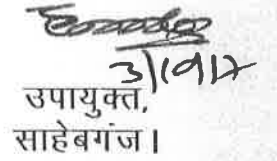 3/10/17
उपायुक्त,
साहेबगंज।